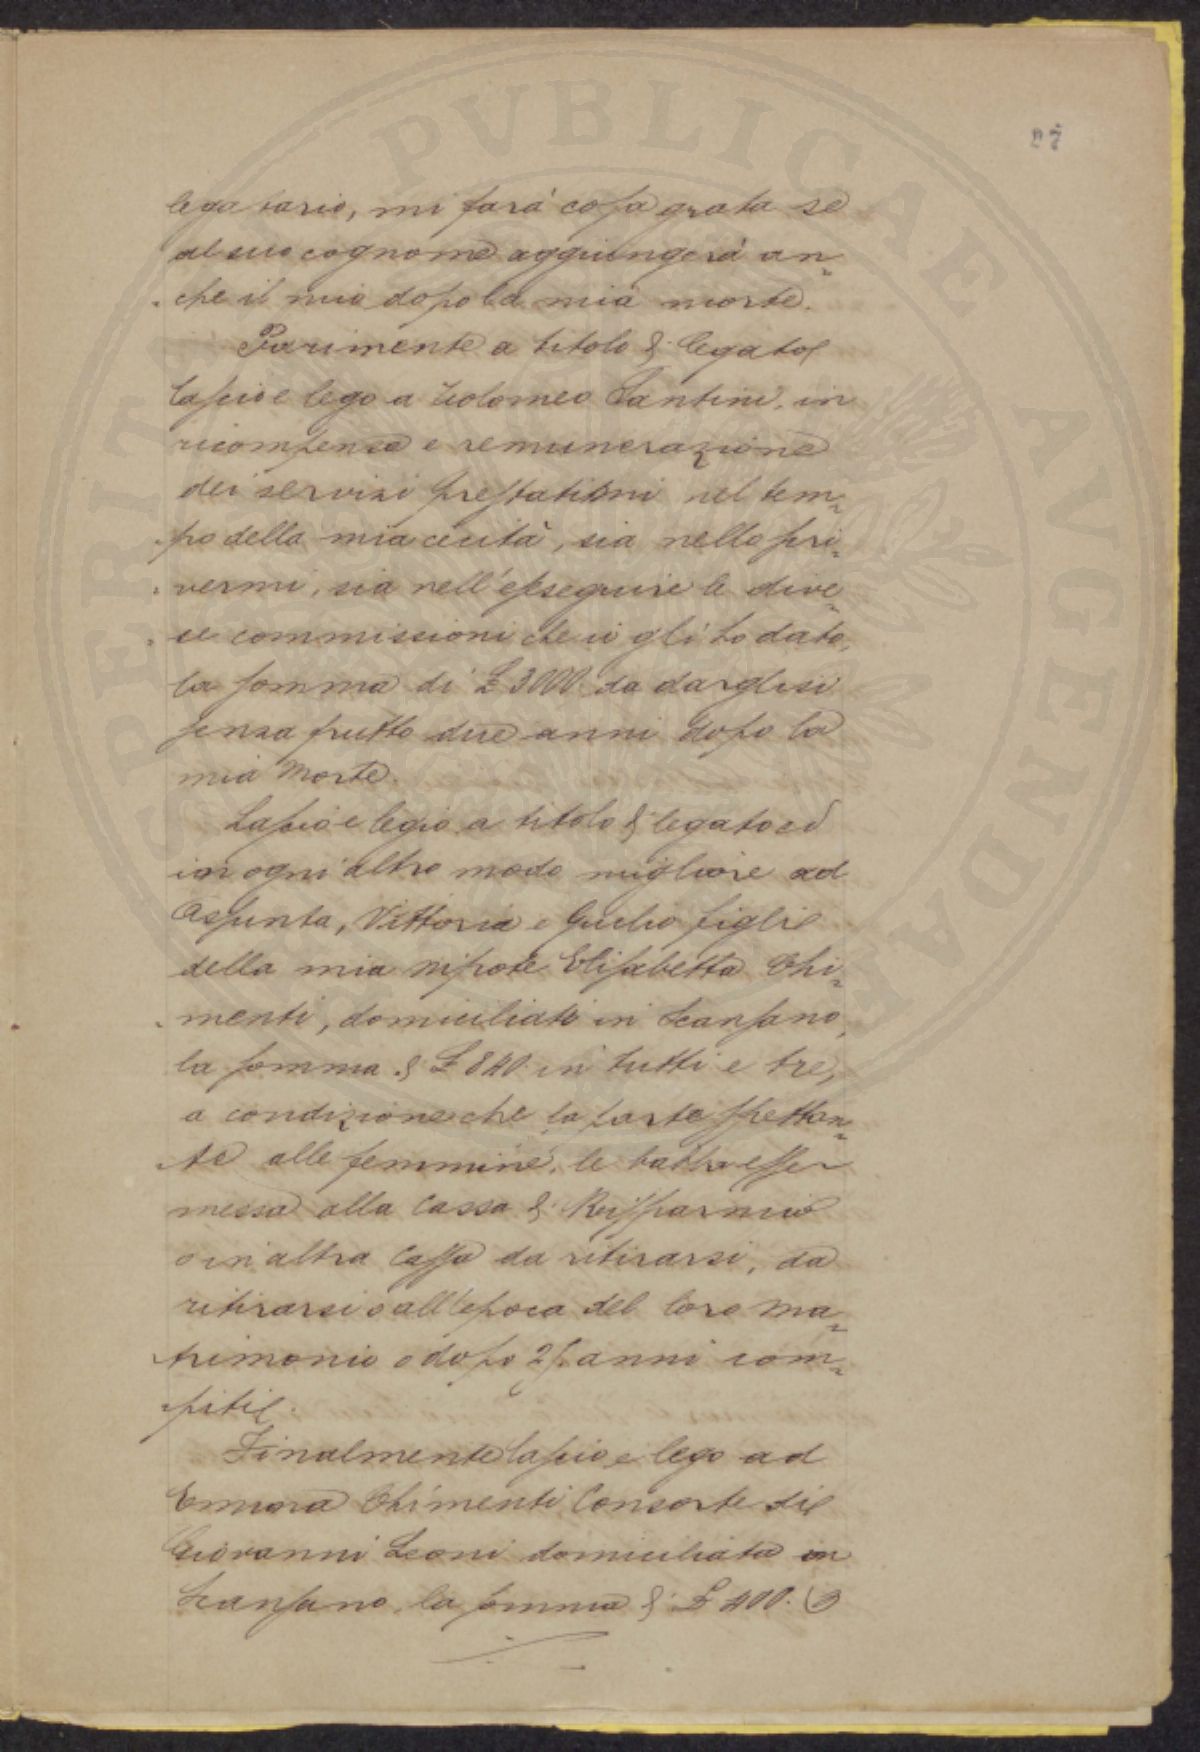 27
legatario, mi farà cosa grata se
al suo cognome aggiungerà an-
che il mio dopo la mia morte.
Parimente a titolo di legato
lascio e lego a Tolomeo Santini, in
ricompensa e remunerazione
dei servizi prestatimi nel tem-
po della mia cecità, sia nello scri-
vermi, sia nell'esseguire le dive-
se commissioni che io gli ho dato,
la somma di £ 3000 da darglisi
senza frutto due anni dopo la
mia morte.
Lascio e legio a titolo di legato ed
in ogni altro modo migliore ad
Assunta, Vittoria e Giulio figli
della mia nipote Elisabetta Chi-
menti, domiciliati in Scansano,
la somma di £ 840 in tutti e tre,
a condizione che la parte spettan-
te alle femmine, le esser
messa alla Cassa di Risparmio
o in altra Cassa da ritirarsi, da
ritirarsi o all'epoca del loro ma-
trimonio o dopo 25 anni com-
piti.
Finalmente lascio e lego ad
Emma Chimenti Consorte di
Giovanni Leoni domiciliata in
Scansano, la somma di £ 400.
PERITAE PVBLICAE AVGENDAE